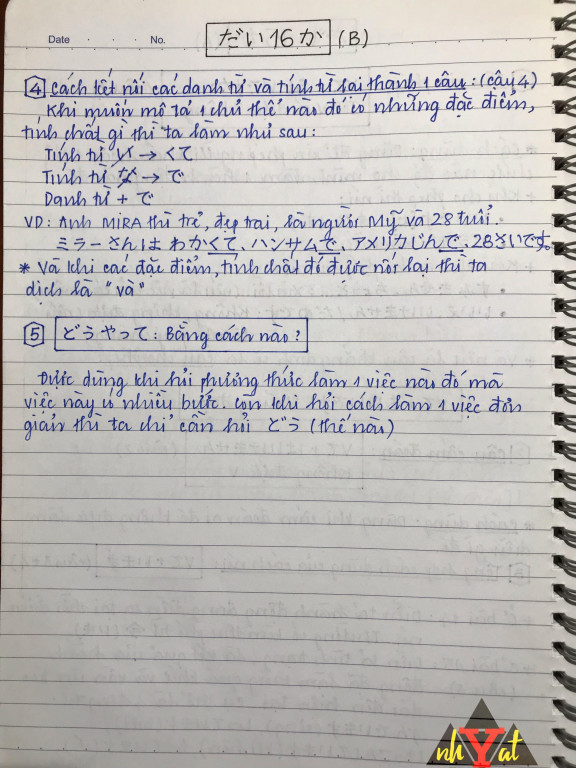 Date . . . No.
だい16か (B)
4 Cách kết nối các danh từ và tính từ lại thành 1 câu: (câu 4)
Khi muốn mô tả 1 chủ thể nào đó có những đặc điểm,
tính chất gì thì ta làm như sau:
Tính từ い → くて
Tính từ な → で
Danh từ + で
VD: Anh MIRA thì trẻ, đẹp trai, là người Mỹ và 28 tuổi.
ミラーさんは わかくて、ハンサムで、アメリカじんで、28さいです。
* Và khi các đặc điểm, tính chất đó được nối lại thì ta
dịch là "và"
5 どうやって: Bằng cách nào?
Được dùng khi hỏi phương thức làm 1 việc nào đó mà
việc này có nhiều bước. Còn khi hỏi cách làm 1 việc đơn
giản thì ta chỉ cần hỏi どう (thế nào)
nhYat